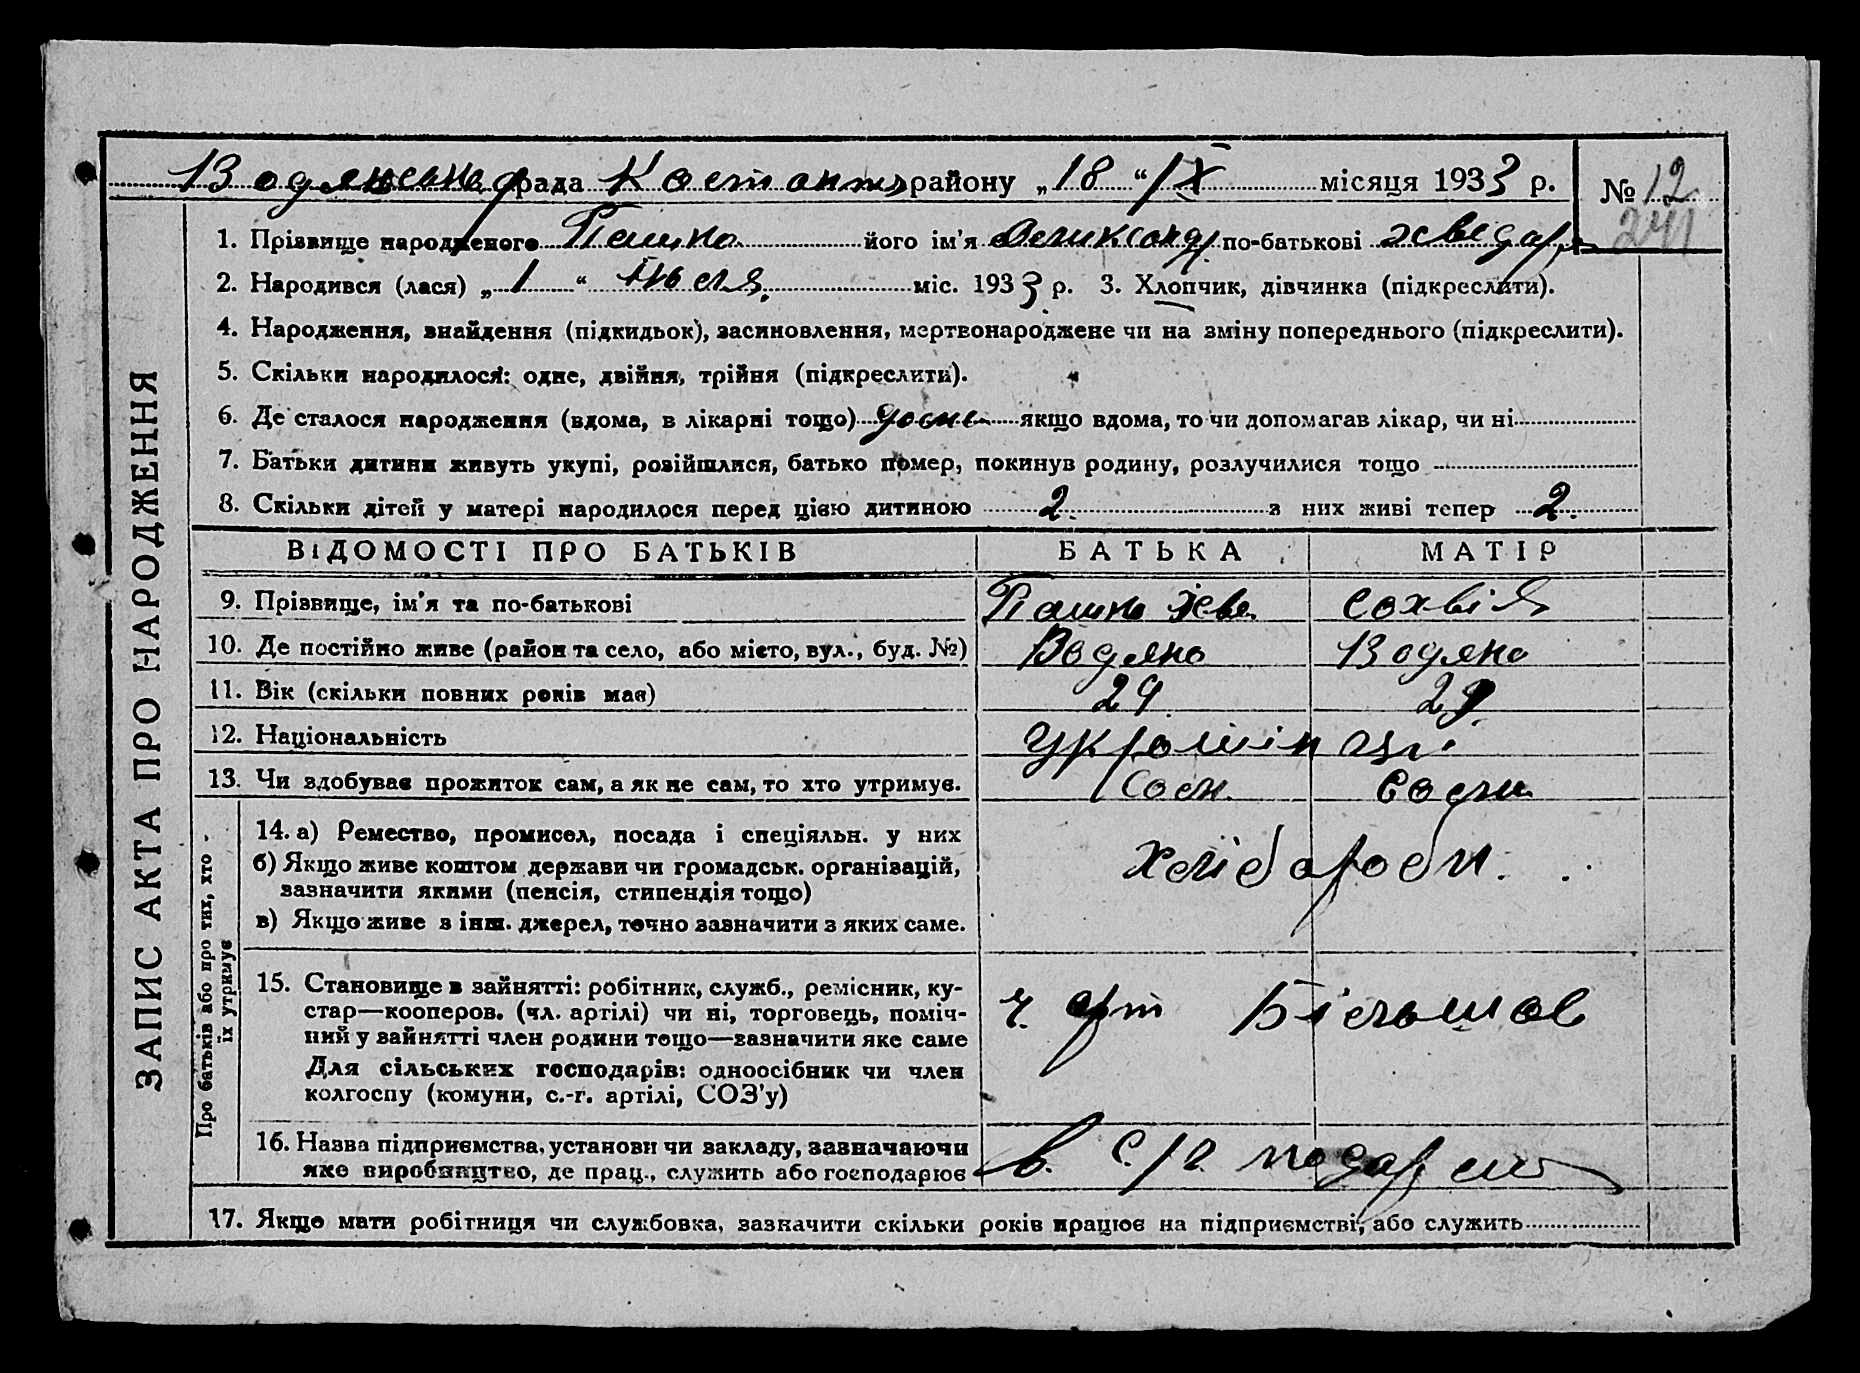 Водянська рада Костант району „18“ IX місяця 1933 р. № 12
241
1. Прізвище народженого Пашко його ім'я Олександ. по-батькові Хведар
2. Народився (лася) „1“ Июля. міс. 1933 р. 3. Хлопчик, дівчинка (підкреслити).
4. Народження, знайдення (підкидьок), засиновлення, мертвонароджене чи на зміну попереднього (підкреслити).
5. Скільки народилося: одне, двійня, трійня (підкреслити).
6. Де сталося народження (вдома, в лікарні тощо) дома якщо вдома, то чи допомагав лікар, чи ні
7. Батьки дитини живуть укупі, розійшлися, батько помер, покинув родину, розлучилися тощо
8. Скільки дітей у матері народилося перед цією дитиною 2. з них живі тепер 2.
ЗАПИС АКТА ПРО НАРОДЖЕННЯ
ВІДОМОСТІ ПРО БАТЬКІВ БАТЬКА МАТІР
9. Прізвище, ім'я та по-батькові Пашко Хве. Сохвія
10. Де постійно живе (район та село, або місто, вул., буд. №) Водяно Водяно
11. Вік (скільки повних років має) 29 29
12. Національність Українці
13. Чи здобуває прожиток сам, а як не сам, то хто утримує. Сами
Про батьків або про тих, хто їх утримує
14. а) Ремество, промисел, посада і спеціяльн. у них
б) Якщо живе коштом держави чи громадськ. організацій,
зазначити якими (пенсія, стипендія тощо)
в) Якщо живе з інш. джерел, точно зазначити з яких саме.
хлібароби.
15. Становище в зайнятті: робітник, служб., ремісник, ку-
стар—кооперов. (чл. артілі) чи ні, торговець, поміч-
ний у зайнятті член родини тощо—зазначити яке саме
Для сільських господарів: одноосібник чи член
колгоспу (комуни, с.-г. артілі, СОЗ'у)
ч. арт Більшов
16. Назва підприємства, установи чи закладу, зазначаючи
яке виробництво, де прац., служить або господарює
в.
17. Якще мати робітниця чи службовка, зазначити скільки років працює на підприємстві, або служить